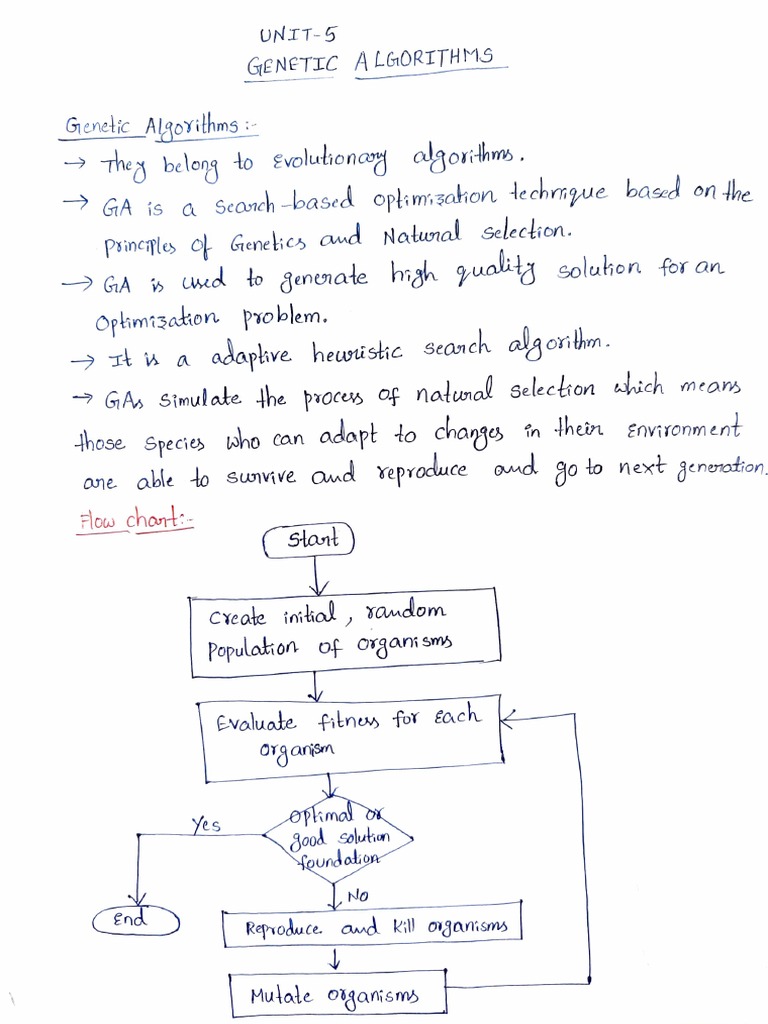 UNIT-5
GENETIC ALGORITHMS
Genetic Algorithms:-
→ They belong to Evolutionary algorithms.
→ GA is a search-based optimization technique based on the
principles of Genetics and Natural selection.
→ GA is used to generate high quality solution for an
optimization problem.
→ It is a adaptive heuristic search algorithm.
→ GAs simulate the process of natural selection which means
those species who can adapt to changes in their environment
are able to survive and reproduce and go to next generation.
Flow chart:-
Start
Create initial, random
population of organisms
Evaluate fitness for each
organism
Optimal or
good solution
foundation
Yes
End
No
Reproduce and kill organisms
Mutate organisms